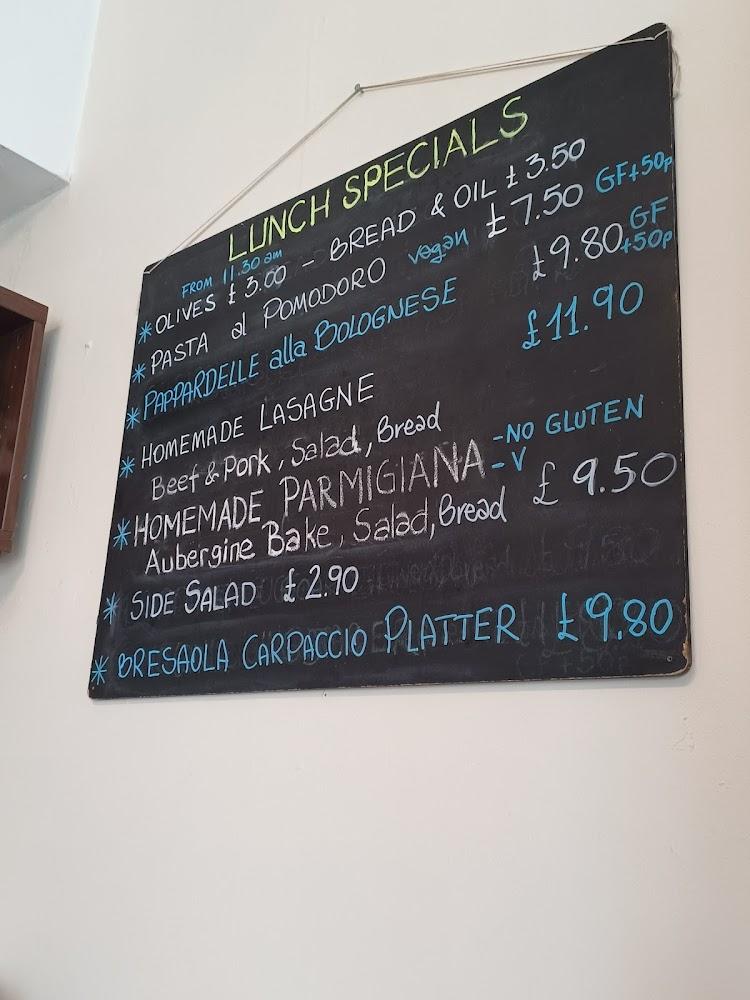 LUNCH SPECIALS
FROM 11.30 am
* OLIVES £ 3.00 - BREAD & OIL £ 3.50
* PASTA al POMODORO vegan £ 7.50 GF+50p
* PAPPARDELLE alla BOLOGNESE £9.80 GF +50p
* HOMEMADE LASAGNE £11.90
Beef & Pork, Salad, Bread
* HOMEMADE PARMIGIANA - NO GLUTEN - V
Aubergine Bake, Salad, Bread £ 9.50
* SIDE SALAD £ 2.90
* BRESAOLA CARPACCIO PLATTER £9.80